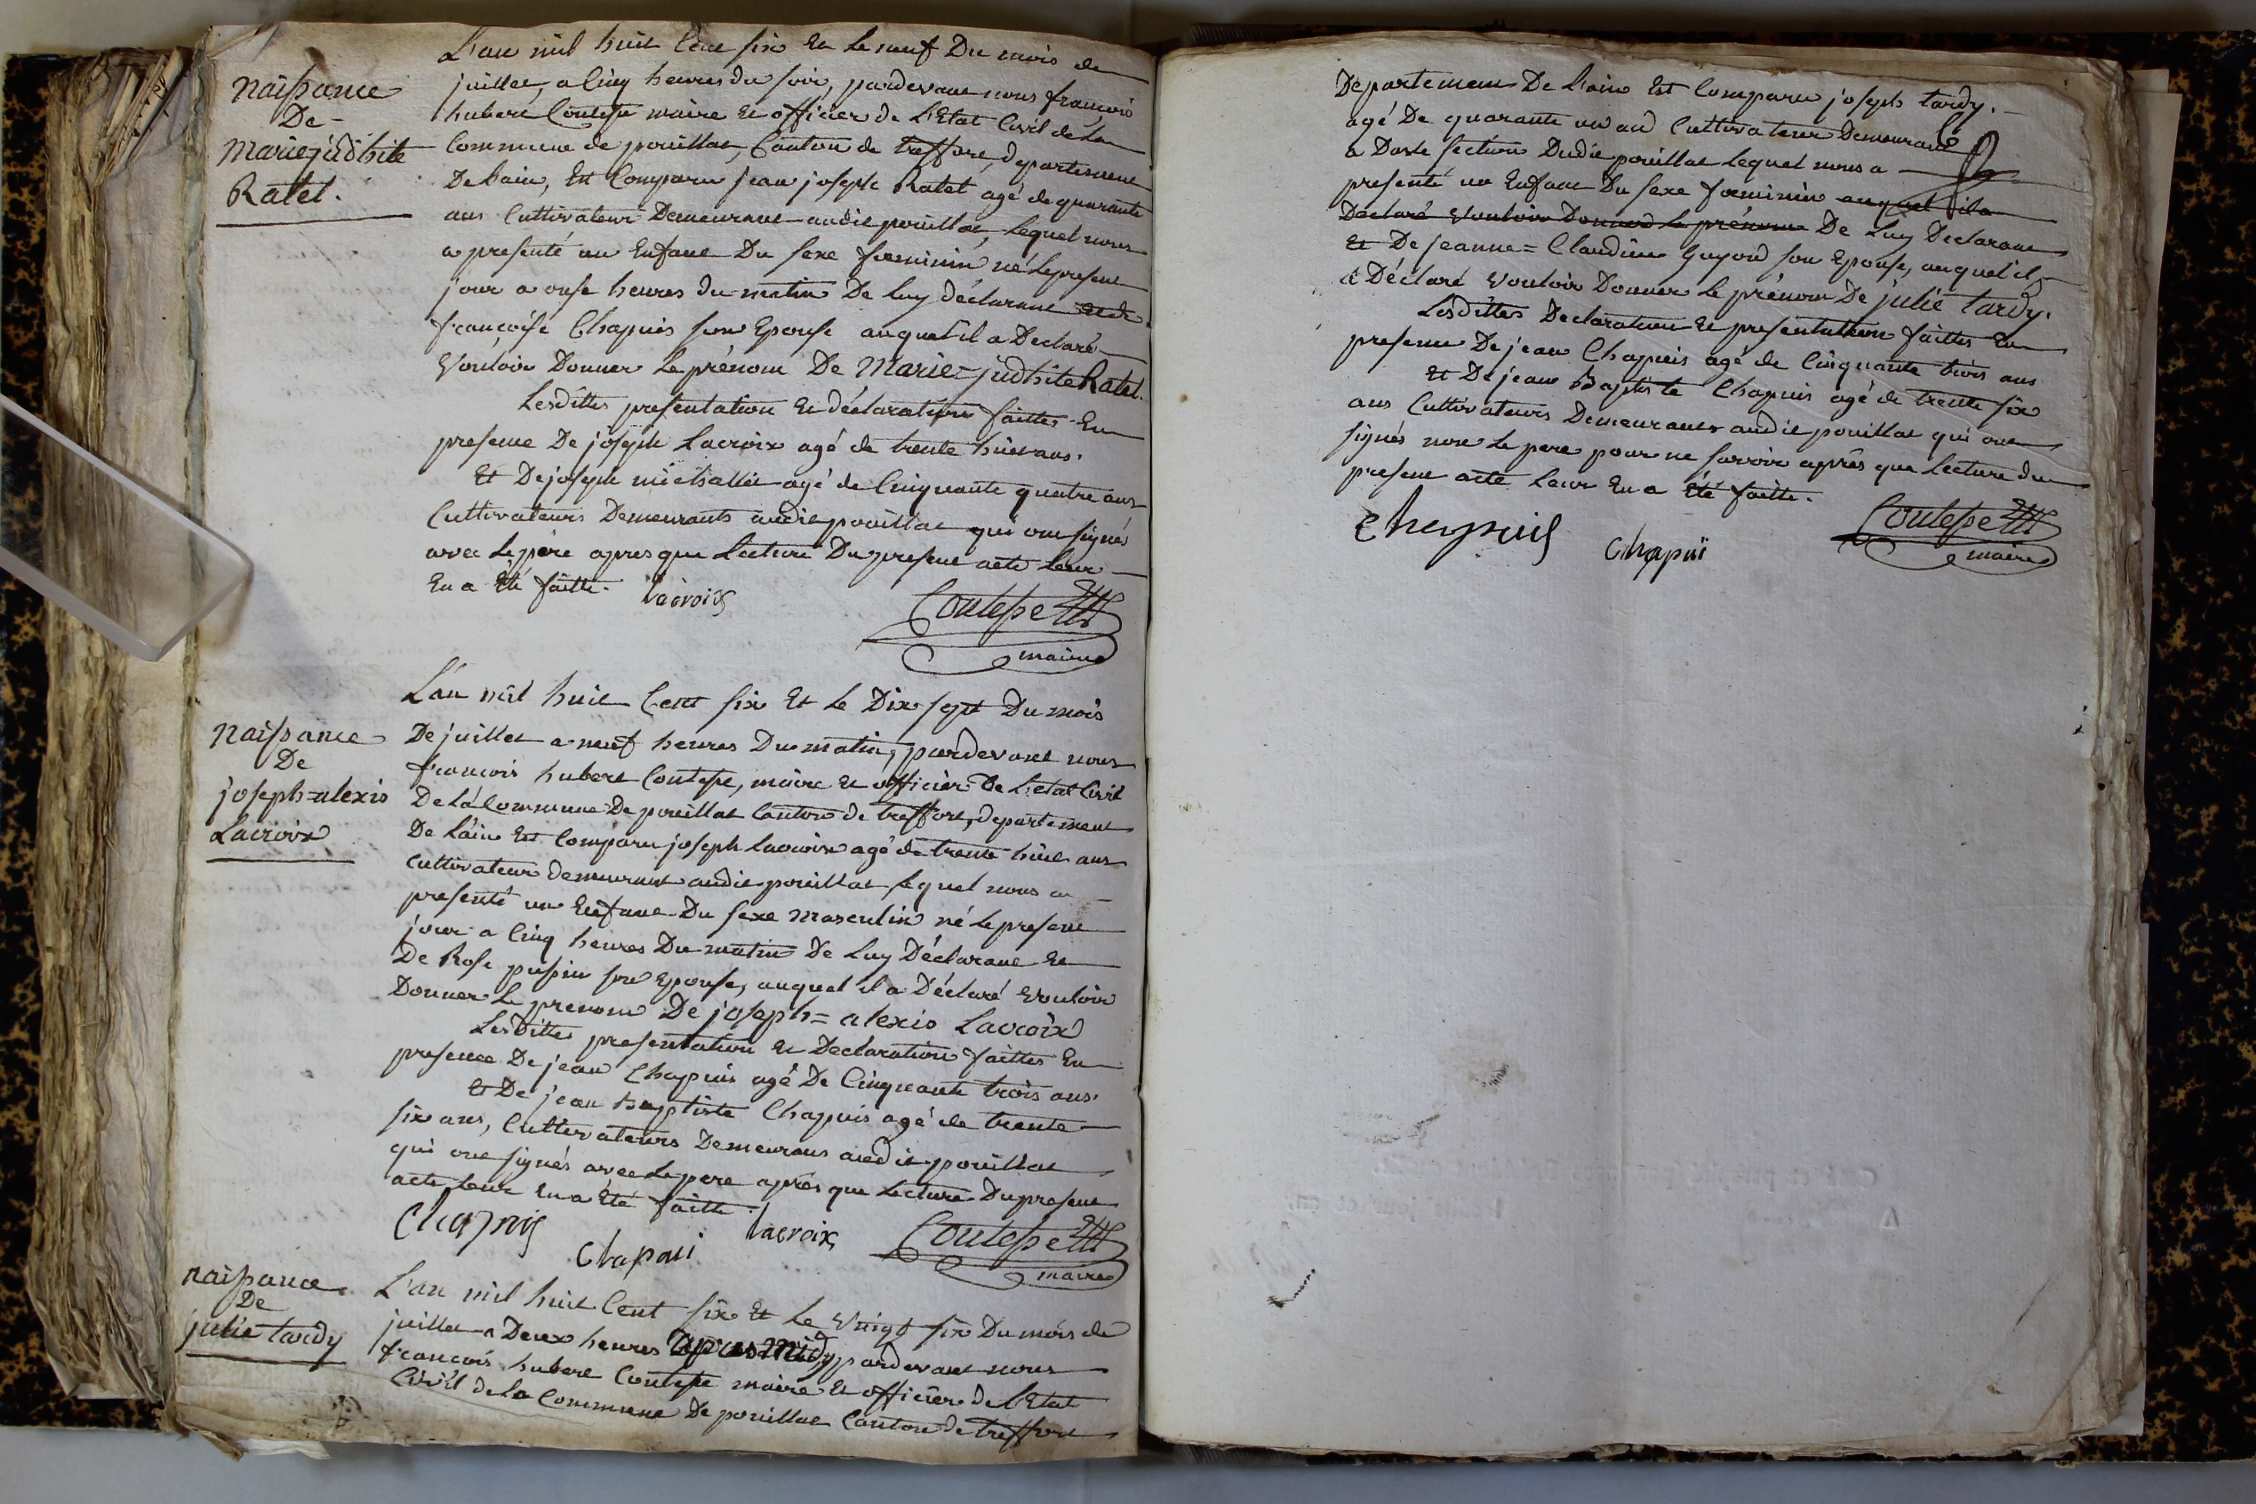 naissance
De
Marie judhite
Ratel.
L'an mil huit Cent six Et le neuf Du mois de
juillet, a Cinq heures du soir, pardevant nous françois
hubert Coutepe maire Et officier de L'Etat Civil de La
Commune de pouillat, Canton de treffort, departement
De L'ain, Est Comparu jean joseph Ratel agé de quarante
ans Cultivateur Demeurant audit pouillat, Lequel nous
a presenté un Enfant Du sexe foeminin né Le present
jour a onse heures du matin De Luy déclarant Et de
françoise Chapuis son Epouse auquel il a Declaré
Vouloir Donner Le prénom De Marie=judhite Ratel.
Lesdittes presentation Et déclaration faittes En
presence De joseph Lacroix agé de trente huit ans.
Et De joseph michallet agé de Cinquante quatre ans
Cultivateurs Demeurants audit pouillat qui ont signés
avec Le père apres que Lecture Du present acte Leur
En a Eté faitte. lacroix
Coutepe
maire
naissance
De
joseph=alexis
Lacroix
L'an mil huit Cent six Et Le Dix sept Du mois
De juillet a neuf heures Du matin, pardevant nous
françois hubert Coutepe, maire Et officier De L'etat Civil
De La Commune De pouillat Canton de treffort, departement
De L'ain Est Comparu joseph Lacroix agé de trente huit ans
Cultivateur demeurant audit pouillat Lequel nous a
presenté un Enfant Du sexe masculin né Le present
jour a Cinq heures Du matin De Luy Déclarant Et
De Rose pupin son Epouse, auquel il a Déclaré Vouloir
Donner Le prenom De joseph=alexis Lacroix
Lesdittes presentation Et Declaration faittes En
presence De jean Chapuis agé De Cinquante trois ans.
Et De jean baptiste Chapuis agé de trente
six ans, Cultivateurs Demeurans audit pouillat
qui ont signés avec Le pere après que Lecture Du present
acte Leur En a Eté faitte.
Chapuis Chapui lacroix Coutepe
maire
naissance
De
julie tardy
L'an mil huit Cent six Et Le Vingt six Du mois de
juillet a Deux heures apres midy pardevant nous
françois hubert Coutepe maire Et officier de L'Etat
Civil de La Commune De pouillat Canton de treffort
Departement De L'ain Est Comparu joseph tardy.
agé De quarante un an Cultivateur Demeurant
a Dasle section Dudit pouillat Lequel nous a
presenté un Enfant Du sexe foeminin auquel il a
Declaré Vouloir Donner Le prénom De Luy Declarant
Et De jeanne=Claudine Guyod son Epouse, auquel il
a Déclaré Vouloir Donner Le prénom De julie tardy.
Lesdittes Declaration Et presentation faittes En
presence De jean Chapuis agé de Cinquante trois ans
Et De jean Baptiste Chapuis agé de trente six
ans Cultivateurs Demeurants audit pouillat qui ont
signés non Le pere pour ne savoir après que Lecture du
present acte Leur En a Eté faitte.
Chapuis Chapui Coutepe
maire